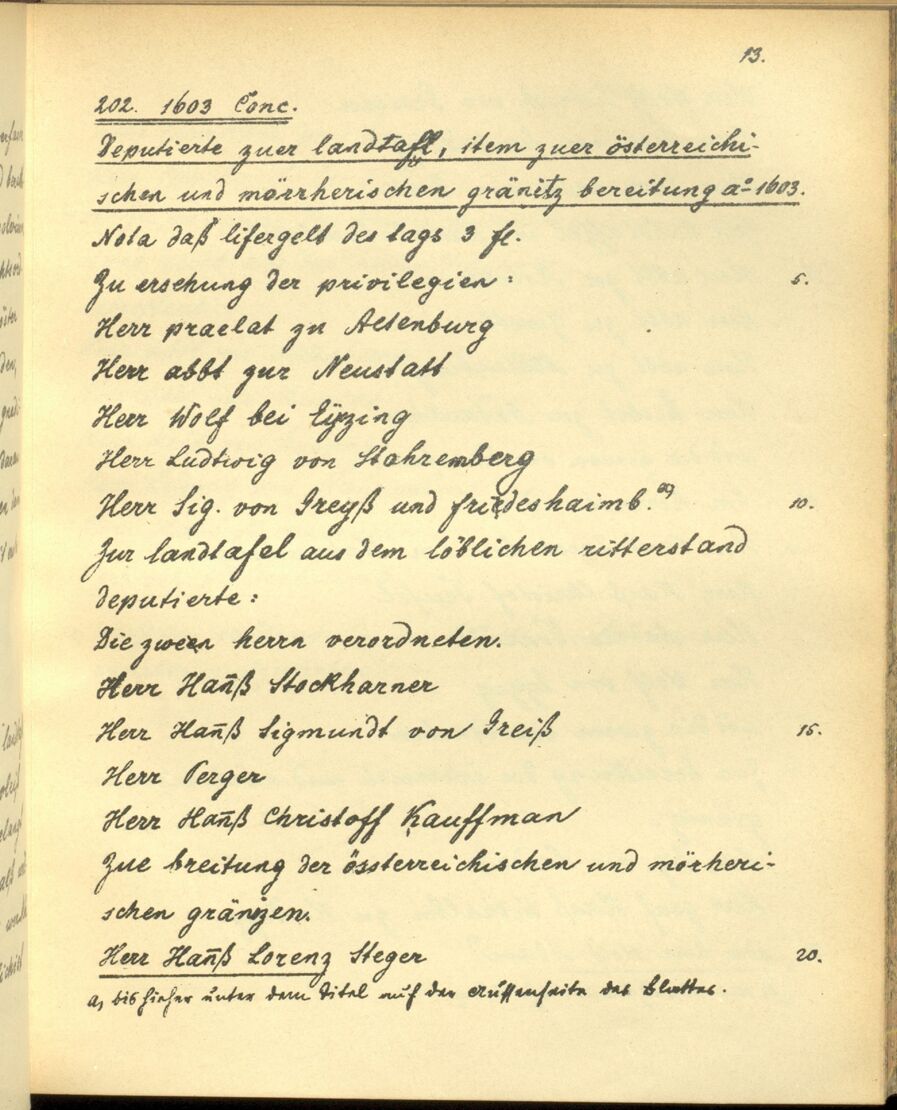 13.
202. 1603 Conc.
Deputierte zuer landtafl, item zuer österreichi-
schen und mörrherischen gränitz bereitung aº 1603.
Nota daß lifergelt des tags 3 fl.
Zu ersehung der privilegien: 5.
Herr praelat zu Altenburg
Herr abbt zur Neustatt
Herr Wolf bei Eÿzing
Herr Ludtwig von Stahremberg
Herr Sig. von Greyß und friedeshaimb. a) 10.
Zur landtafel aus dem löblichen ritterstand
deputierte:
Die zween herrn verordneten.
Herr Han̄ß Stockharner
Herr Han̄ß Sigmundt von Greiß 15.
Herr Perger
Herr Han̄ß Christoff Kauffman
Zue breitung der össterreichischen und mörheri-
schen gränizen.
Herr Han̄ß Lorenz Steger 20.
a) bis hieher unter dem Titel auf der Aussenseite des Blattes.